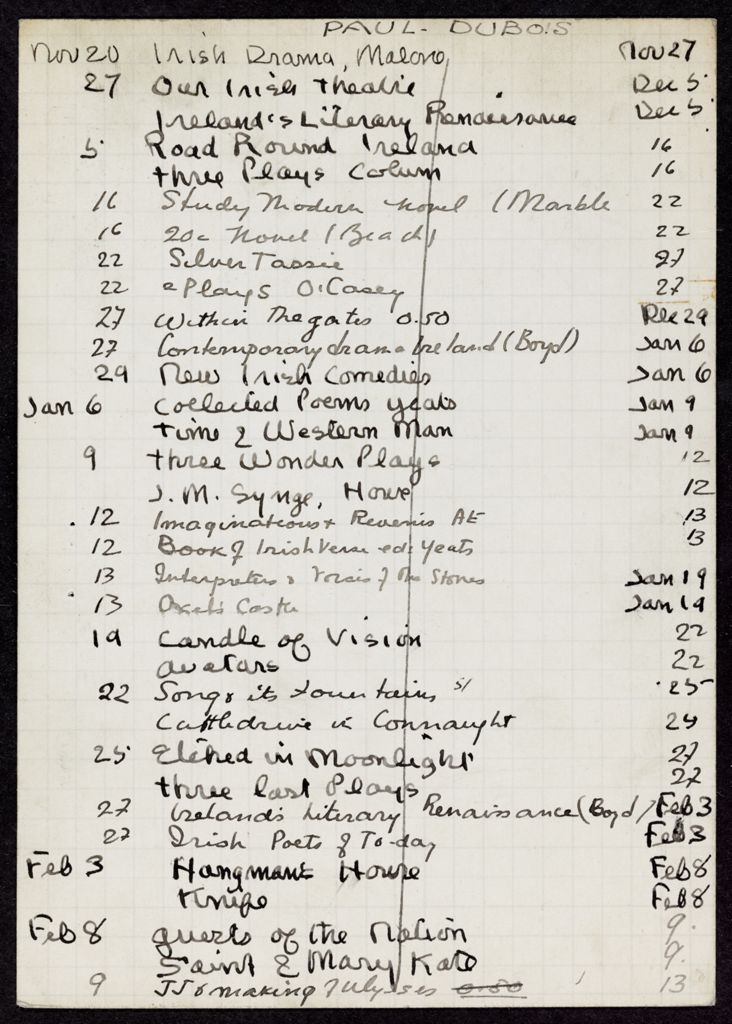 PAUL. DUBOIS
Nov 20 Irish Drama, Malone Nov 27
27 Our Irish Theatre Dec 5
Ireland's Literary Renaissance Dec 5
5 Road Round Ireland 16
three Plays Colum 16
16 Study Modern novel (Marble 22
16 20c novel (Beach) 22
22 Silver Tassie 27
22 2 Plays O'Casey 27
27 Within the gates 0.50 Dec 29
27 Contemporary drama Ireland (Boyd) Jan 6
29 New Irish Comedies Jan 6
Jan 6 Collected Poems yeats Jan 9
time & Western Man Jan 9
9 three Wonder Plays 12
J. M. Synge, Howe 12
12 Imaginations & Reveries AE 13
12 Book of Irish Verse ed. yeats 13
13 Interpreters & Voices of the Stones Jan 19
13 Axel's Castle Jan 19
19 Candle of Vision 22
avatars 22
22 Song & its fountains 25
Cattledrive in Connaught 25
25 Etched in Moonlight 27
three last Plays 27
27 Ireland's Literary Renaissance (Boyd) Feb 3
27 Irish Poets of To-day Feb 3
Feb 3 Hangman's House Feb 8
Knife Feb 8
Feb 8 guests of the Nation 9.
Saint & Mary Kate 9.
9 JJ & making Ulysses 0.50 13